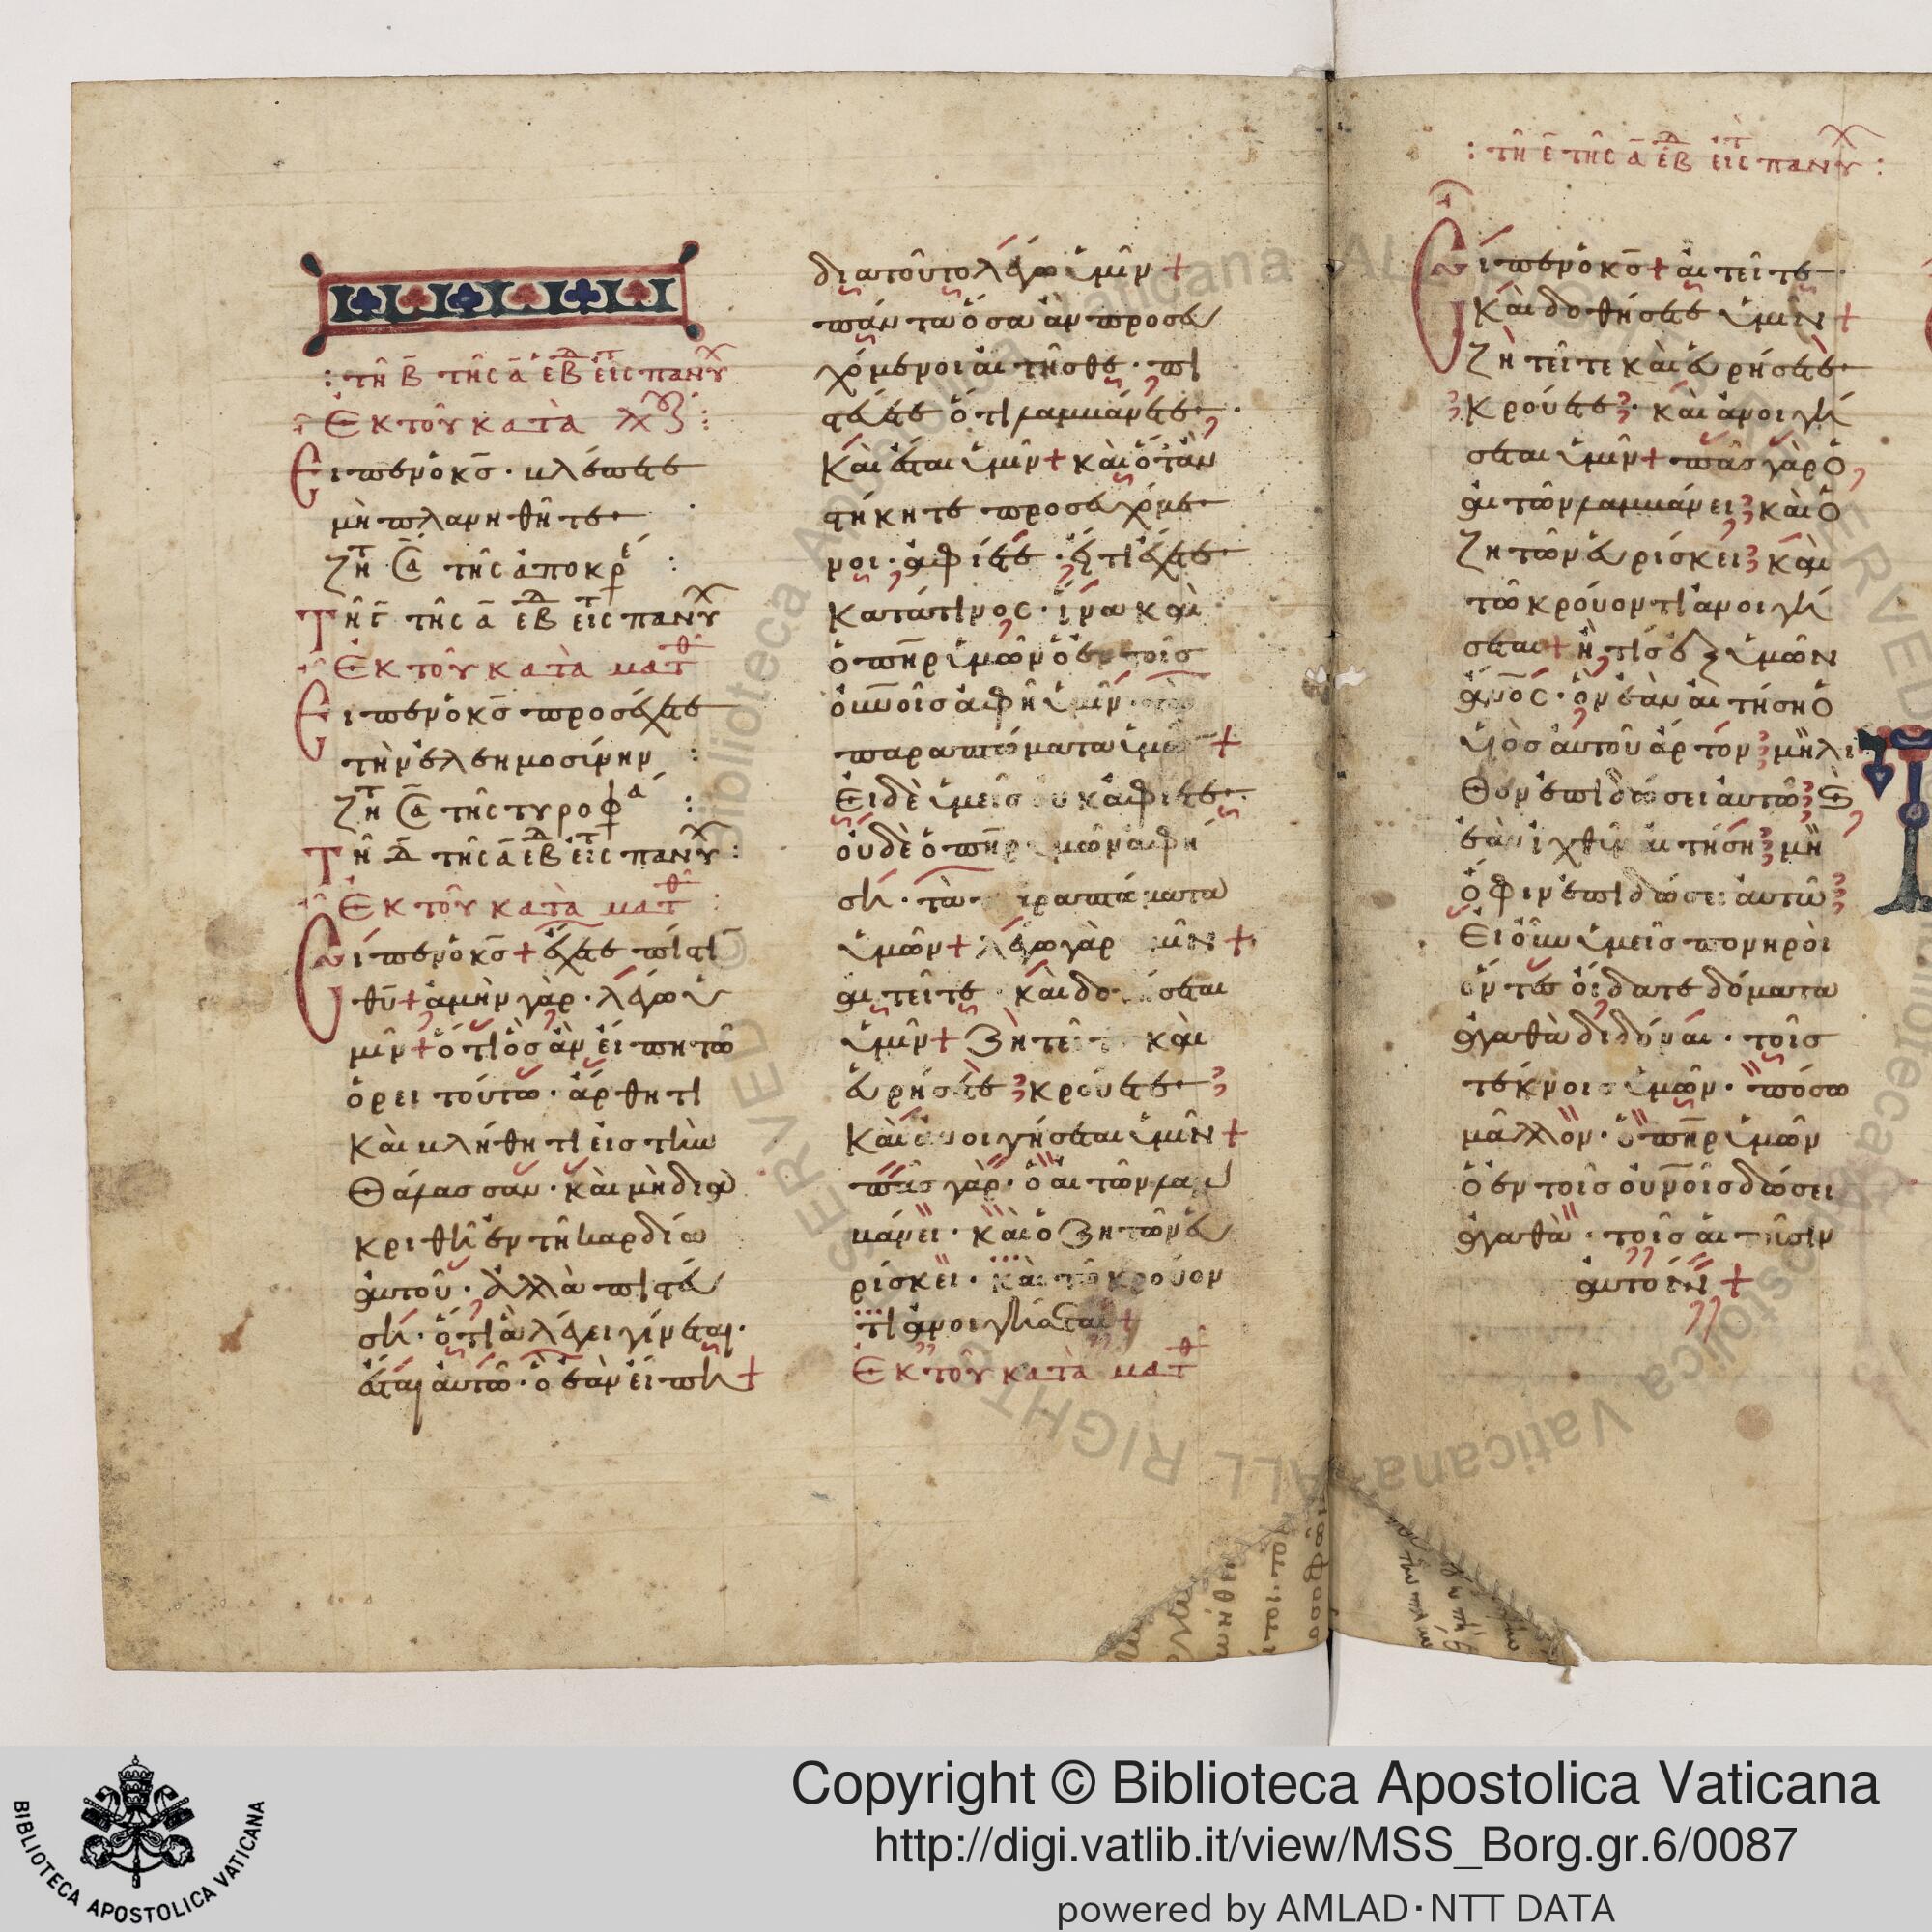 : τῆ β̄ τῆς ᾱ ἑβδ εἰς παννυχ
Ἐκ τοῦ κατὰ λκ :
Εἶπεν ὁ κς̄· βλέπετε
μὴ πλανηθῆτε·
ζητ τῆς ἀποκρέ :
Τῆ γ̄ τῆς ᾱ ἑβδ εἰς παννυχ
Ἐκ τοῦ κατὰ ματθ
Εἶπεν ὁ κς̄ προσέχετε
τὴν ἐλεημοσύνην :
ζητ τῆς τυροφά :
Τῆ δ̄ τῆς ᾱ ἑβδ εἰς παννυχ :
Ἐκ τοῦ κατὰ ματθ :
Εἶπεν ὁ κς̄ + ἔχετε πίστι
θῡ + ἀμὴν γὰρ· λέγω ὑ
μῖν + ὅτι ὃς ἂν εἴπη τῶ
ὄρει τούτω· ἄρθητι
καὶ βλήθητι εἰς τὴν
θάλασσαν· καὶ μὴ δια
κριθῆ ἐν τῆ καρδία
αὐτοῦ· ἀλλὰ πιστεύ
ση· ὅτι ἃ λέγει γίνεται·
ἔσται αὐτῶ· ὃ ἐὰν εἴπη +
διατοῦτο λέγω ὑμῖν +
πάντα ὅσα ἂν προσευ
χόμενοι αἰτῆσθε· πι
στεύετε ὅτι λαμβάνετε·
καὶ ἔσται ὑμῖν + καὶ ὅταν
στήκητε προσευχόμε
νοι· ἀφίετε· εἴ τι ἔχετε
κατά τινος· ἵνα καὶ
ὁ πη̄ρ ὑμῶν ὁ ἐν τοῖς
οὐνοῖς ἀφῆ ὑμῖν· τὰ
παραπτώματα ὑμῶν +
Εἰ δὲ ὑμεῖς οὐκ ἀφίετε·
οὐδὲ ὁ πη̄ρ ὑμῶν ἀφή
ση· τὰ παραπτώματα
ὑμῶν + λέγω γὰρ ὑμῖν +
αἰτεῖτε καὶ δοθήσεται
ὑμῖν + ζητεῖτε καὶ
εὑρήσετε κρούετε·
καὶ ἀνοιγήσεται ὑμῖν +
πᾶς γὰρ· ὁ αἰτῶν λαμ
βάνει· καὶ ὁ ζητῶν εὑ
ρίσκει· καὶ τῶ κρούον
τι ἀνοιγήσεται +
Ἐκ τοῦ κατὰ ματθ
: τῆ ε̄ τῆς ᾱ ἑβδ εἰς παννυχ :
Εἶπεν ὁ κς̄ + αἰτεῖτε·
καὶ δοθήσεται ὑμῖν +
ζητεῖτε καὶ εὑρήσετε·
κρούετε· καὶ ἀνοιγή
σεται ὑμῖν + πᾶς γὰρ ὁ
αἰτῶν λαμβάνει καὶ ὁ
ζητῶν εὑρίσκει καὶ
τῶ κρούοντι ἀνοιγή
σεται + ἢ τίς ἐξ ὑμῶν
ἀν̄ος· ὃν ἐὰν αἰτήση ὁ
υἱὸς αὐτοῦ ἄρτον μὴ λί
θον ἐπιδώσει αὐτῶ καὶ
ἐὰν ἰχθὺν αἰτήση μὴ
ὄφιν ἐπιδώσει αὐτῶ
Εἰ οὖν ὑμεῖς πονηροὶ
ὄντες οἴδατε δόματα
ἀγαθὰ διδόναι· τοῖς
τέκνοις ὑμῶν· πόσω
μᾶλλον· ὁ πη̄ρ ὑμῶν
ὁ ἐν τοῖς οὐν̄οῖς δώσει
ἀγαθὰ· τοῖς αἰτοῦσιν
αὐτόν +
Copyright © Biblioteca Apostolica Vaticana
http://digi.vatlib.it/view/MSS_Borg.gr.6/0087
powered by AMLAD·NTT DATA
BIBLIOTECA APOSTOLICA VATICANA